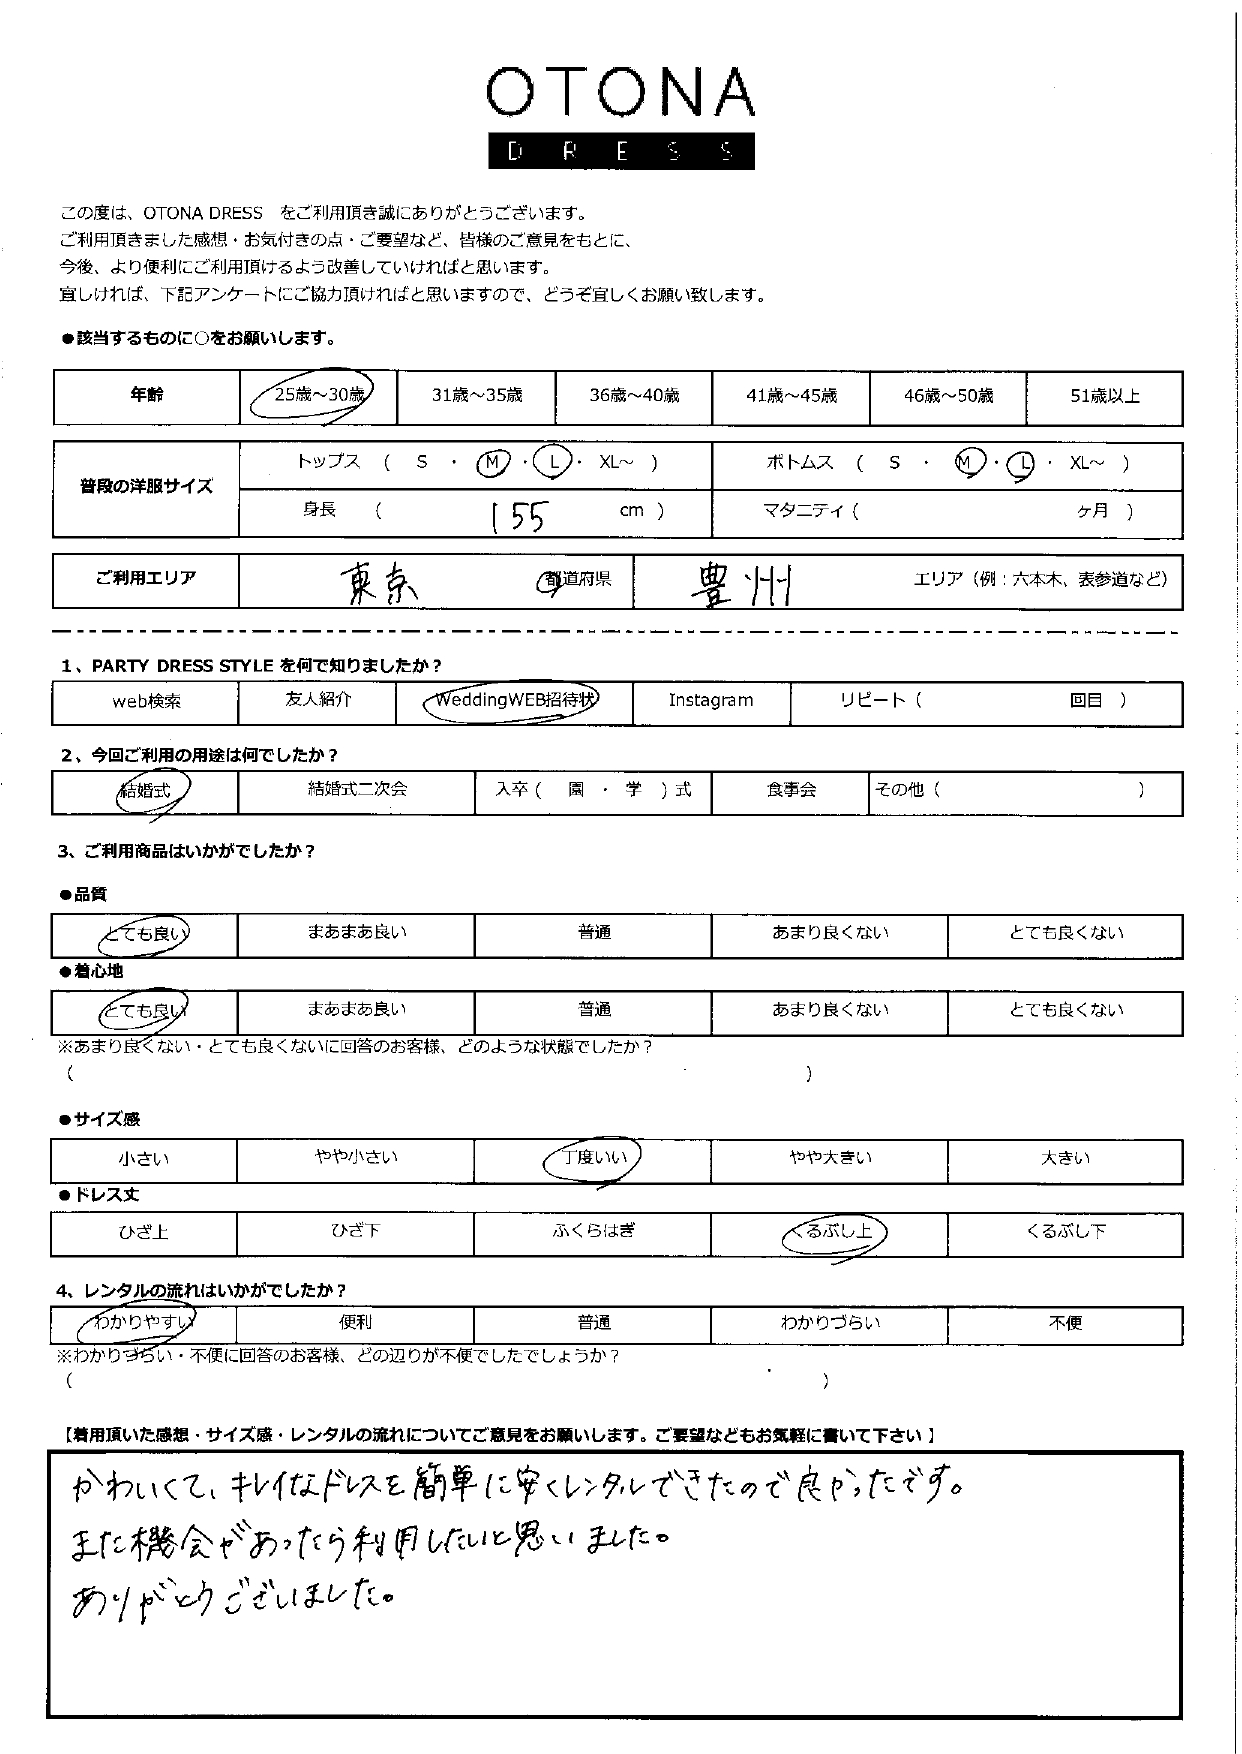 OTONA
DRESS
この度は、OTONA DRESS　をご利用頂き誠にありがとうございます。
ご利用頂きました感想・お気付きの点・ご要望など、皆様のご意見をもとに、
今後、より便利にご利用頂けるよう改善していければと思います。
宜しければ、下記アンケートにご協力頂ければと思いますので、どうぞ宜しくお願い致します。
●該当するものに○をお願いします。
年齢 25歳～30歳 31歳～35歳 36歳～40歳 41歳～45歳 46歳～50歳 51歳以上
普段の洋服サイズ トップス （ S ・ M ・ L ・ XL～ ） ボトムス （ S ・ M ・ L ・ XL～ ）
身長 （ 155 cm ） マタニティ（ ヶ月 ）
ご利用エリア 東京 都道府県 豊州 エリア（例：六本木、表参道など）
1、PARTY DRESS STYLE を何で知りましたか？
web検索 友人紹介 WeddingWEB招待状 Instagram リピート（ 回目 ）
2、今回ご利用の用途は何でしたか？
結婚式 結婚式二次会 入卒（ 園 ・ 学 ）式 食事会 その他（ ）
3、ご利用商品はいかがでしたか？
●品質
とても良い まあまあ良い 普通 あまり良くない とても良くない
●着心地
とても良い まあまあ良い 普通 あまり良くない とても良くない
※あまり良くない・とても良くないに回答のお客様、どのような状態でしたか？
（ ）
●サイズ感
小さい やや小さい 丁度いい やや大きい 大きい
●ドレス丈
ひざ上 ひざ下 ふくらはぎ くるぶし上 くるぶし下
4、レンタルの流れはいかがでしたか？
わかりやすい 便利 普通 わかりづらい 不便
※わかりづらい・不便に回答のお客様、どの辺りが不便でしたでしょうか？
（ ）
【着用頂いた感想・サイズ感・レンタルの流れについてご意見をお願いします。ご要望などもお気軽に書いて下さい】
かわいくて、キレイなドレスを簡単に安くレンタルできたので良かったです。
また機会があったら利用したいと思いました。
ありがとうございました。